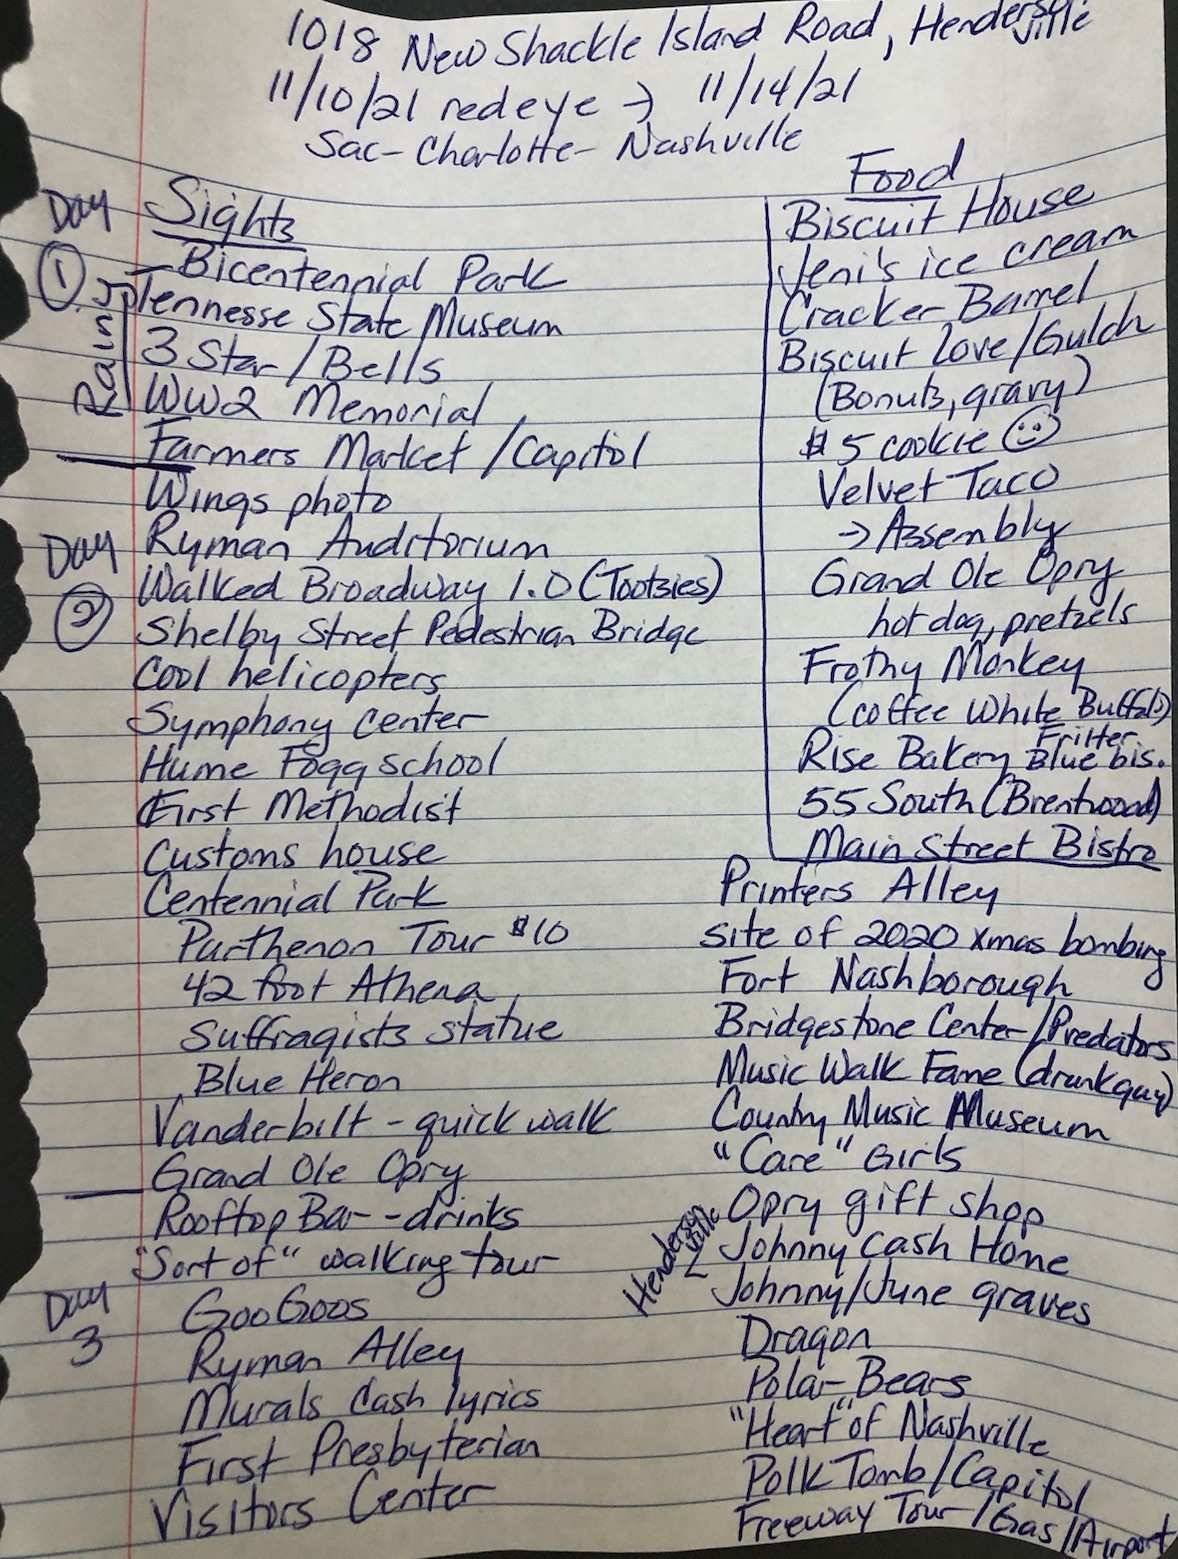 1018 New Shackle Island Road, Hendersonville
11/10/21 redeye → 11/14/21
Sac - Charlotte - Nashville
Day
①
Rainy
Sights
Bicentennial Park
Tennesse State Museum
3 Star / Bells
WW2 Memorial
Farmers Market / Capitol
Wings photo
Day
②
Ryman Auditorium
Walked Broadway 1.0 (Tootsies)
Shelby Street Pedestrian Bridge
Cool helicopters
Symphony Center
Hume Fogg school
First Methodist
Customs house
Centennial Park
Parthenon Tour $10
42 foot Athena
Suffragists statue
Blue Heron
Vanderbilt - quick walk
Grand Ole Opry
Rooftop Bar - drinks
"Sort of" walking tour
Day
3
Goo Goos
Ryman Alley
Murals Cash lyrics
First Presbyterian
Visitors Center
Food
Biscuit House
Jeni's ice cream
Cracker Barrel
Biscuit Love / Gulch
(Bonuts, gravy)
$5 cookie ☺
Velvet Taco
→ Assembly
Grand Ole Opry
hot dog, pretzels
Frothy Monkey
(coffee White Buffalo)
Rise Bakery Fritter Blue bis.
55 South (Brentwood)
Main Street Bistro
Printers Alley
site of 2020 xmas bombing
Fort Nashborough
Bridgestone Center / Predators
Music Walk Fame (drunk guy)
Country Music Museum
"Care" Girls
Opry gift shop
Hendersonville
Johnny Cash Home
Johnny/June graves
Dragon
Polar Bears
"Heart" of Nashville
Polk Tomb / Capitol
Freeway Tour / Gas / Airport